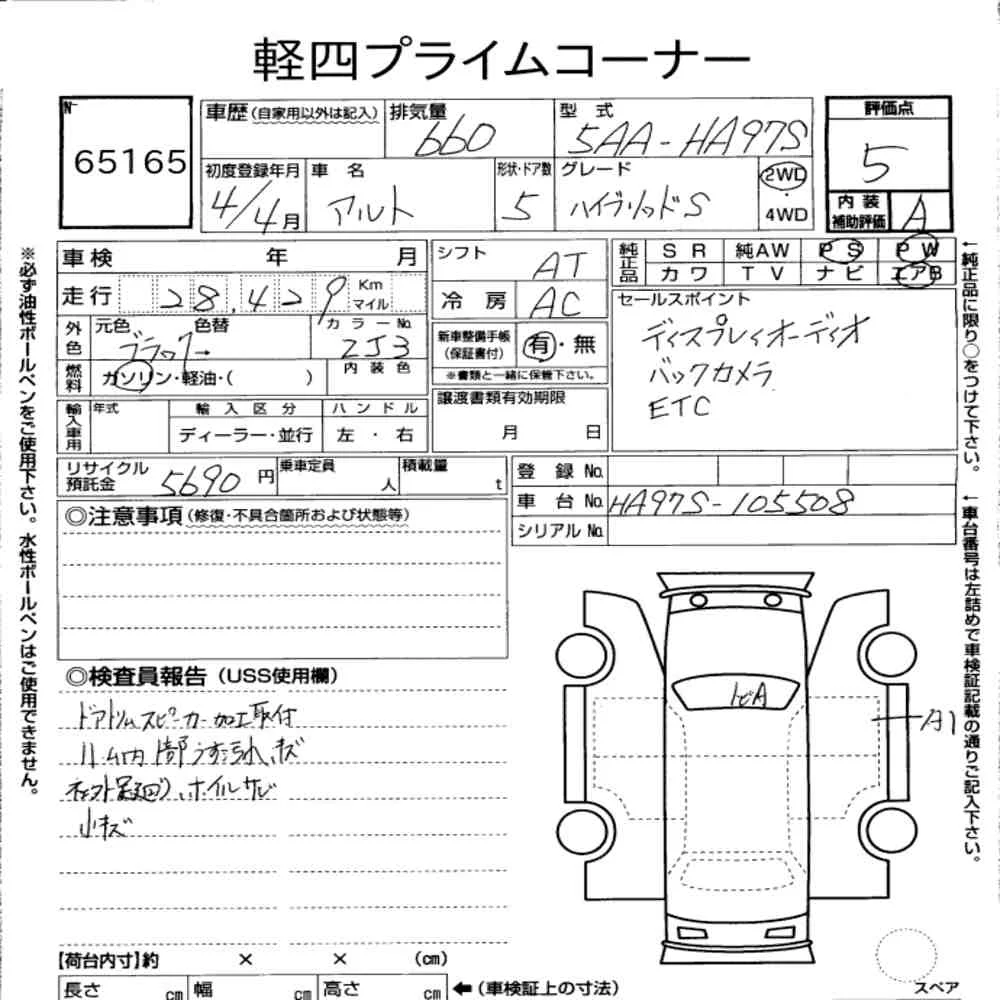 軽四プライムコーナー
No.
65165
車歴(自家用以外は記入)
排気量
660
型式
5AA-HA97S
評価点
5
初度登録年月
4/4月
車名
アルト
形状・ドア数
5
グレード
ハイブリッドS
2WD
・
4WD
内装
補助評価
A
車検 年 月
シフト
AT
純正品
SR 純AW PS PW
カワ TV ナビ エアB
走行 28,429 Km マイル
冷房
AC
セールスポイント
ディスプレイオーディオ
バックカメラ
ETC
外色
元色 色替
ブラック→
カラーNo.
ZJ3
新車整備手帳
(保証書付)
有・無
※書類と一緒に保管下さい。
燃料
ガソリン・軽油・( )
内装色
譲渡書類有効期限
月 日
輸入車用
年式
輸入区分
ディーラー・並行
ハンドル
左・右
リサイクル
預託金
5690円
乗車定員
人
積載量
t
登録No.
車台No. HA97S-105508
シリアルNo.
◎注意事項(修復・不具合箇所および状態等)
◎検査員報告(USS使用欄)
ドアトリムスピーカー加工取付
小キズ
トビA
A1
【荷台内寸】約 × × (cm)
長さ cm 幅 cm 高さ cm ←(車検証上の寸法)
スペア
※必ず油性ボールペンをご使用下さい。水性ボールペンはご使用できません。
←純正品に限り○をつけて下さい。
←車台番号は左詰めで車検証記載の通りご記入下さい。